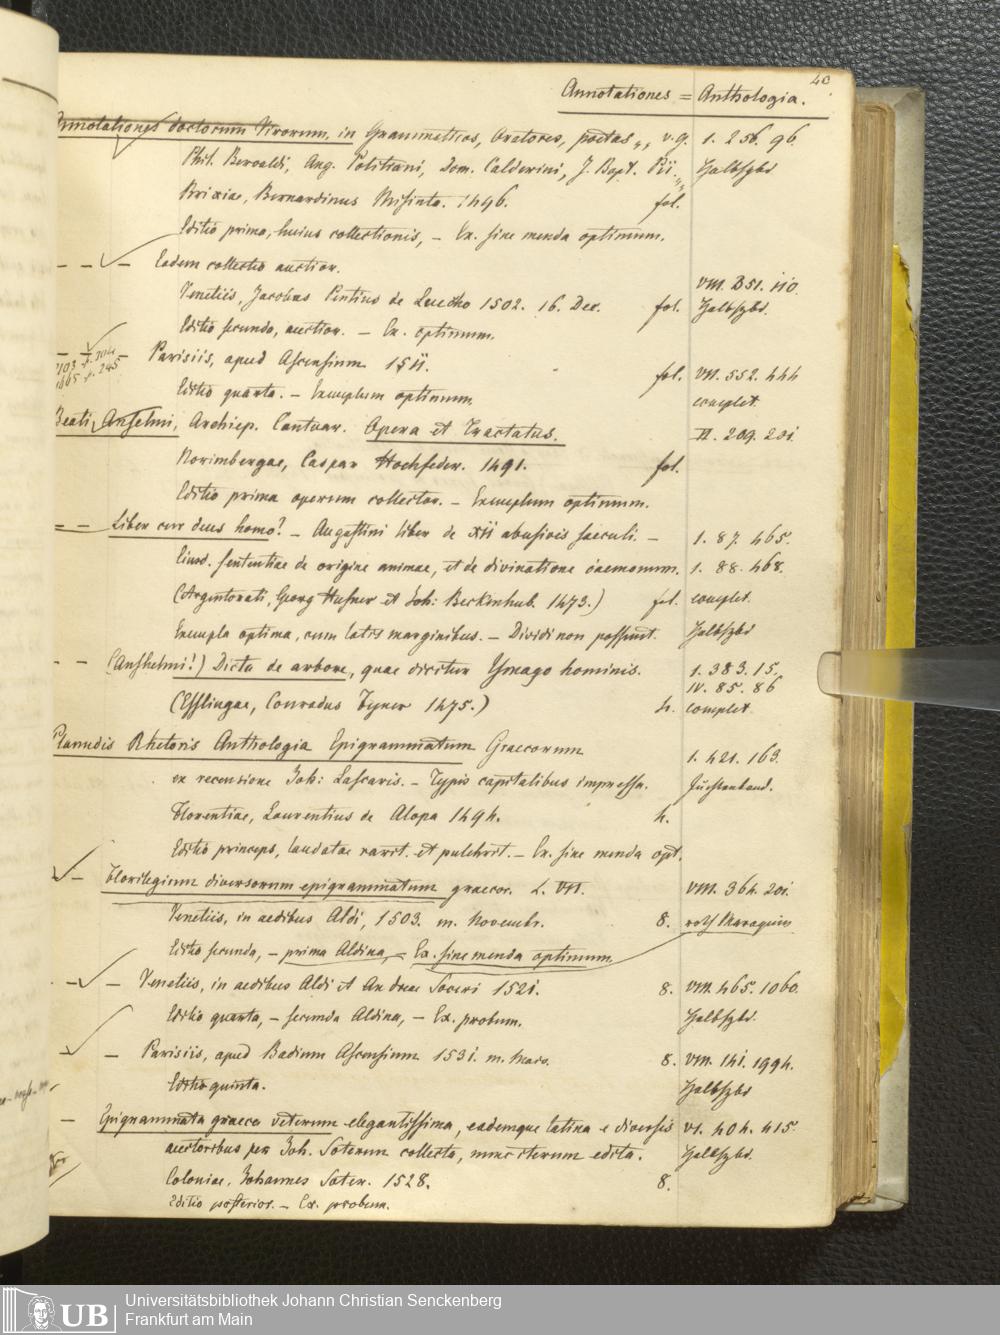 40
Annotationes = Anthologia.
Annotationes doctorum Virorum in Grammaticos, Oratores, poetas, v. g. 1. 256. 96.
Phil. Beroaldi, Ang. Politiani, Dom. Calderini, J. Bapt. Pii. Halbfzbd
Brixiae, Bernardinus Misinta. 1496. fol.
Editio prima, huius collectionis, – Ex. sine menda optimum.
– – – Eadem collectio auctior. VIII. 351. 110.
Venetiis, Jacobus Pentius de Leucho 1502. 16. Dec. fol. Halbfzbd.
Editio secunda, auctior. – Ex. optimum.
– – – Parisiis, apud Ascensium 1511. fol. VII. 552. 444
Editio quarta. – Exemplum optimum complet.
Beati Anselmi, Archiep. Cantuar. Opera et Tractatus. II. 209. 201.
Norimbergae, Caspar Hochfeder. 1491. fol.
Editio prima operum collector. – Exemplum optimum.
– – Liber cur deus homo? – Augustini liber de XII abusivis saeculi. – 1. 87. 465.
Eiusd. sententiae de origine animae, et de divinatione daemonum. 1. 88. 468.
(Argentorati, Georg Husner et Joh: Beckenhub. 1473.) fol. complet.
Exempla optima, cum latis marginibus. – Dividi non possunt. Halbfzbd
– – (Anshelmi!) Dicta de arbore, quae dicitur Ymago hominis. 1. 383. 15.
IV. 85. 86
(Esslingae, Conradus Fyner 1475.) 4. complet.
Planudis Rhetoris Anthologia Epigrammatum Graecorum 1. 421. 163.
ex recensione Joh: Lascaris. – Typis capitalibus impressa.
Florentiae, Laurentius de Alopa 1494. 4.
Editio princeps, laudatae rarit. et pulchrit. – Ex. sine menda opt.
– Florilegium diversorum epigrammatum graecor. L. VII. VIII. 364. 201.
Venetiis, in aedibus Aldi, 1503. m. Novembr. 8. roth Maroquin
Editio secunda, – prima Aldina, – Ex. sine menda optimum
– – – Venetiis, in aedibus Aldi et Andreae Soceri 1521. 8. VIII. 465. 1060.
Editio quarta, – secunda Aldina, – Ex. probum. Halbfzbd.
– Parisiis, apud Badium Ascensium 1531. m. Mars. 8. VIII. 141. 1994.
Editio quinta. Halbfzbd
– Epigrammata graeca veterum elegantissima, eademque latina e diversis VI. 404. 415.
auctoribus per Joh. Soterum collecta, nunc iterum edita. Halbfzbd.
Coloniae, Johannes Soter. 1528. 8.
Editio posterior. – Ex. probum.
UB
Universitätsbibliothek Johann Christian Senckenberg
Frankfurt am Main